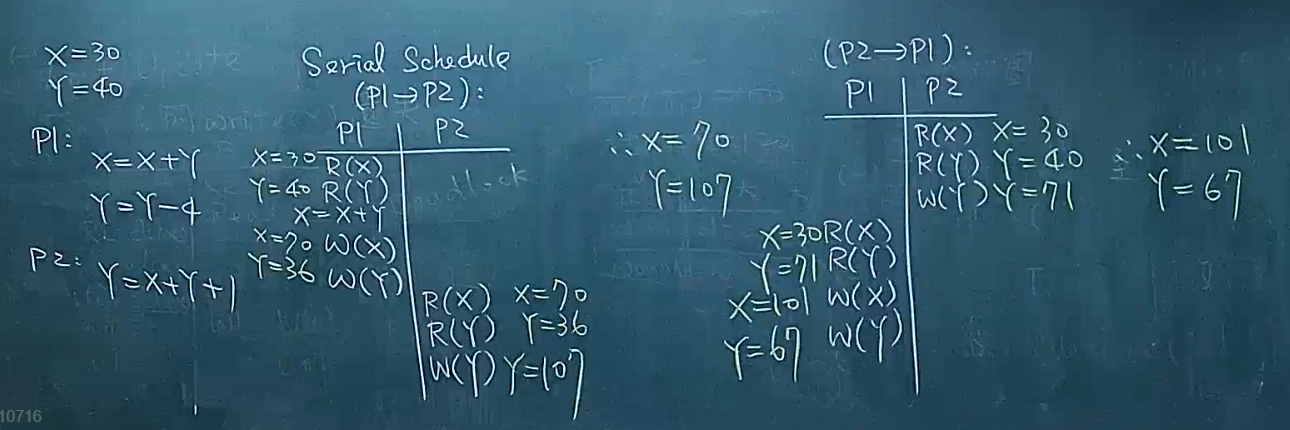 X=30
Y=40
P1:
X=X+Y
Y=Y-4
P2:
Y=X+Y+1
Serial Schedule
(P1→P2):
P1 P2
X=30 R(X)
Y=40 R(Y)
X=X+Y
X=70 W(X)
Y=36 W(Y)
R(X) X=70
R(Y) Y=36
W(Y) Y=107
∴ X=70
Y=107
(P2→P1):
P1 P2
R(X) X=30
R(Y) Y=40
W(Y) Y=71
X=30 R(X)
Y=71 R(Y)
X=101 W(X)
Y=67 W(Y)
∴ X=101
Y=67
10716